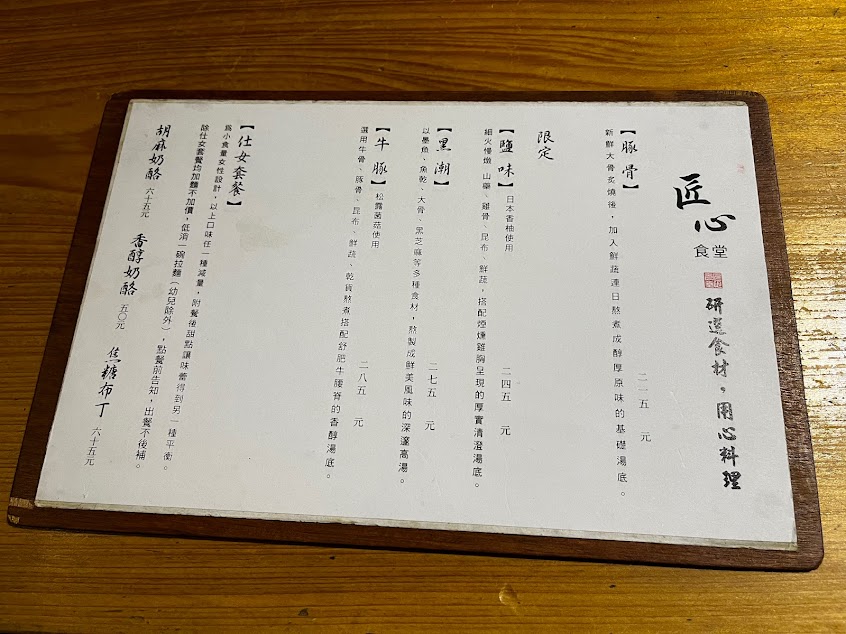 匠心
食堂
研選食材，用心料理
【豚骨】 二二五 元
新鮮大骨炙燒後，加入鮮蔬連日熬煮成醇厚原味的基礎湯底。
限定
【鹽味】日本香柚使用 二四五 元
細火慢燉，山藥、雞骨、昆布、鮮蔬，搭配煙燻雞胸呈現的厚實清澄湯底。
【黑潮】 二七五 元
以墨魚、魚乾、大骨、黑芝麻等多種食材，熬製成鮮美風味的深邃高湯。
【牛豚】松露菌菇使用 二八五 元
選用牛骨、豚骨、昆布、鮮蔬、乾貨熬煮搭配舒肥牛腰脊的香醇湯底。
【仕女套餐】
為小食量女性設計，以上口味任一種減量，附餐後甜點讓味蕾得到另一種平衡。
除仕女套餐均加麵不加價，低消一碗拉麵（幼兒除外），點餐前告知，出餐不後補。
胡麻奶酪 六十五元 香醇奶酪 五〇元 焦糖布丁 六十五元